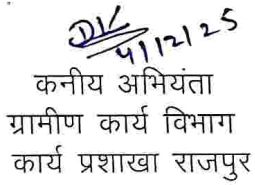 4/12/25
कनीय अभियंता
ग्रामीण कार्य विभाग
कार्य प्रशाखा राजपुर